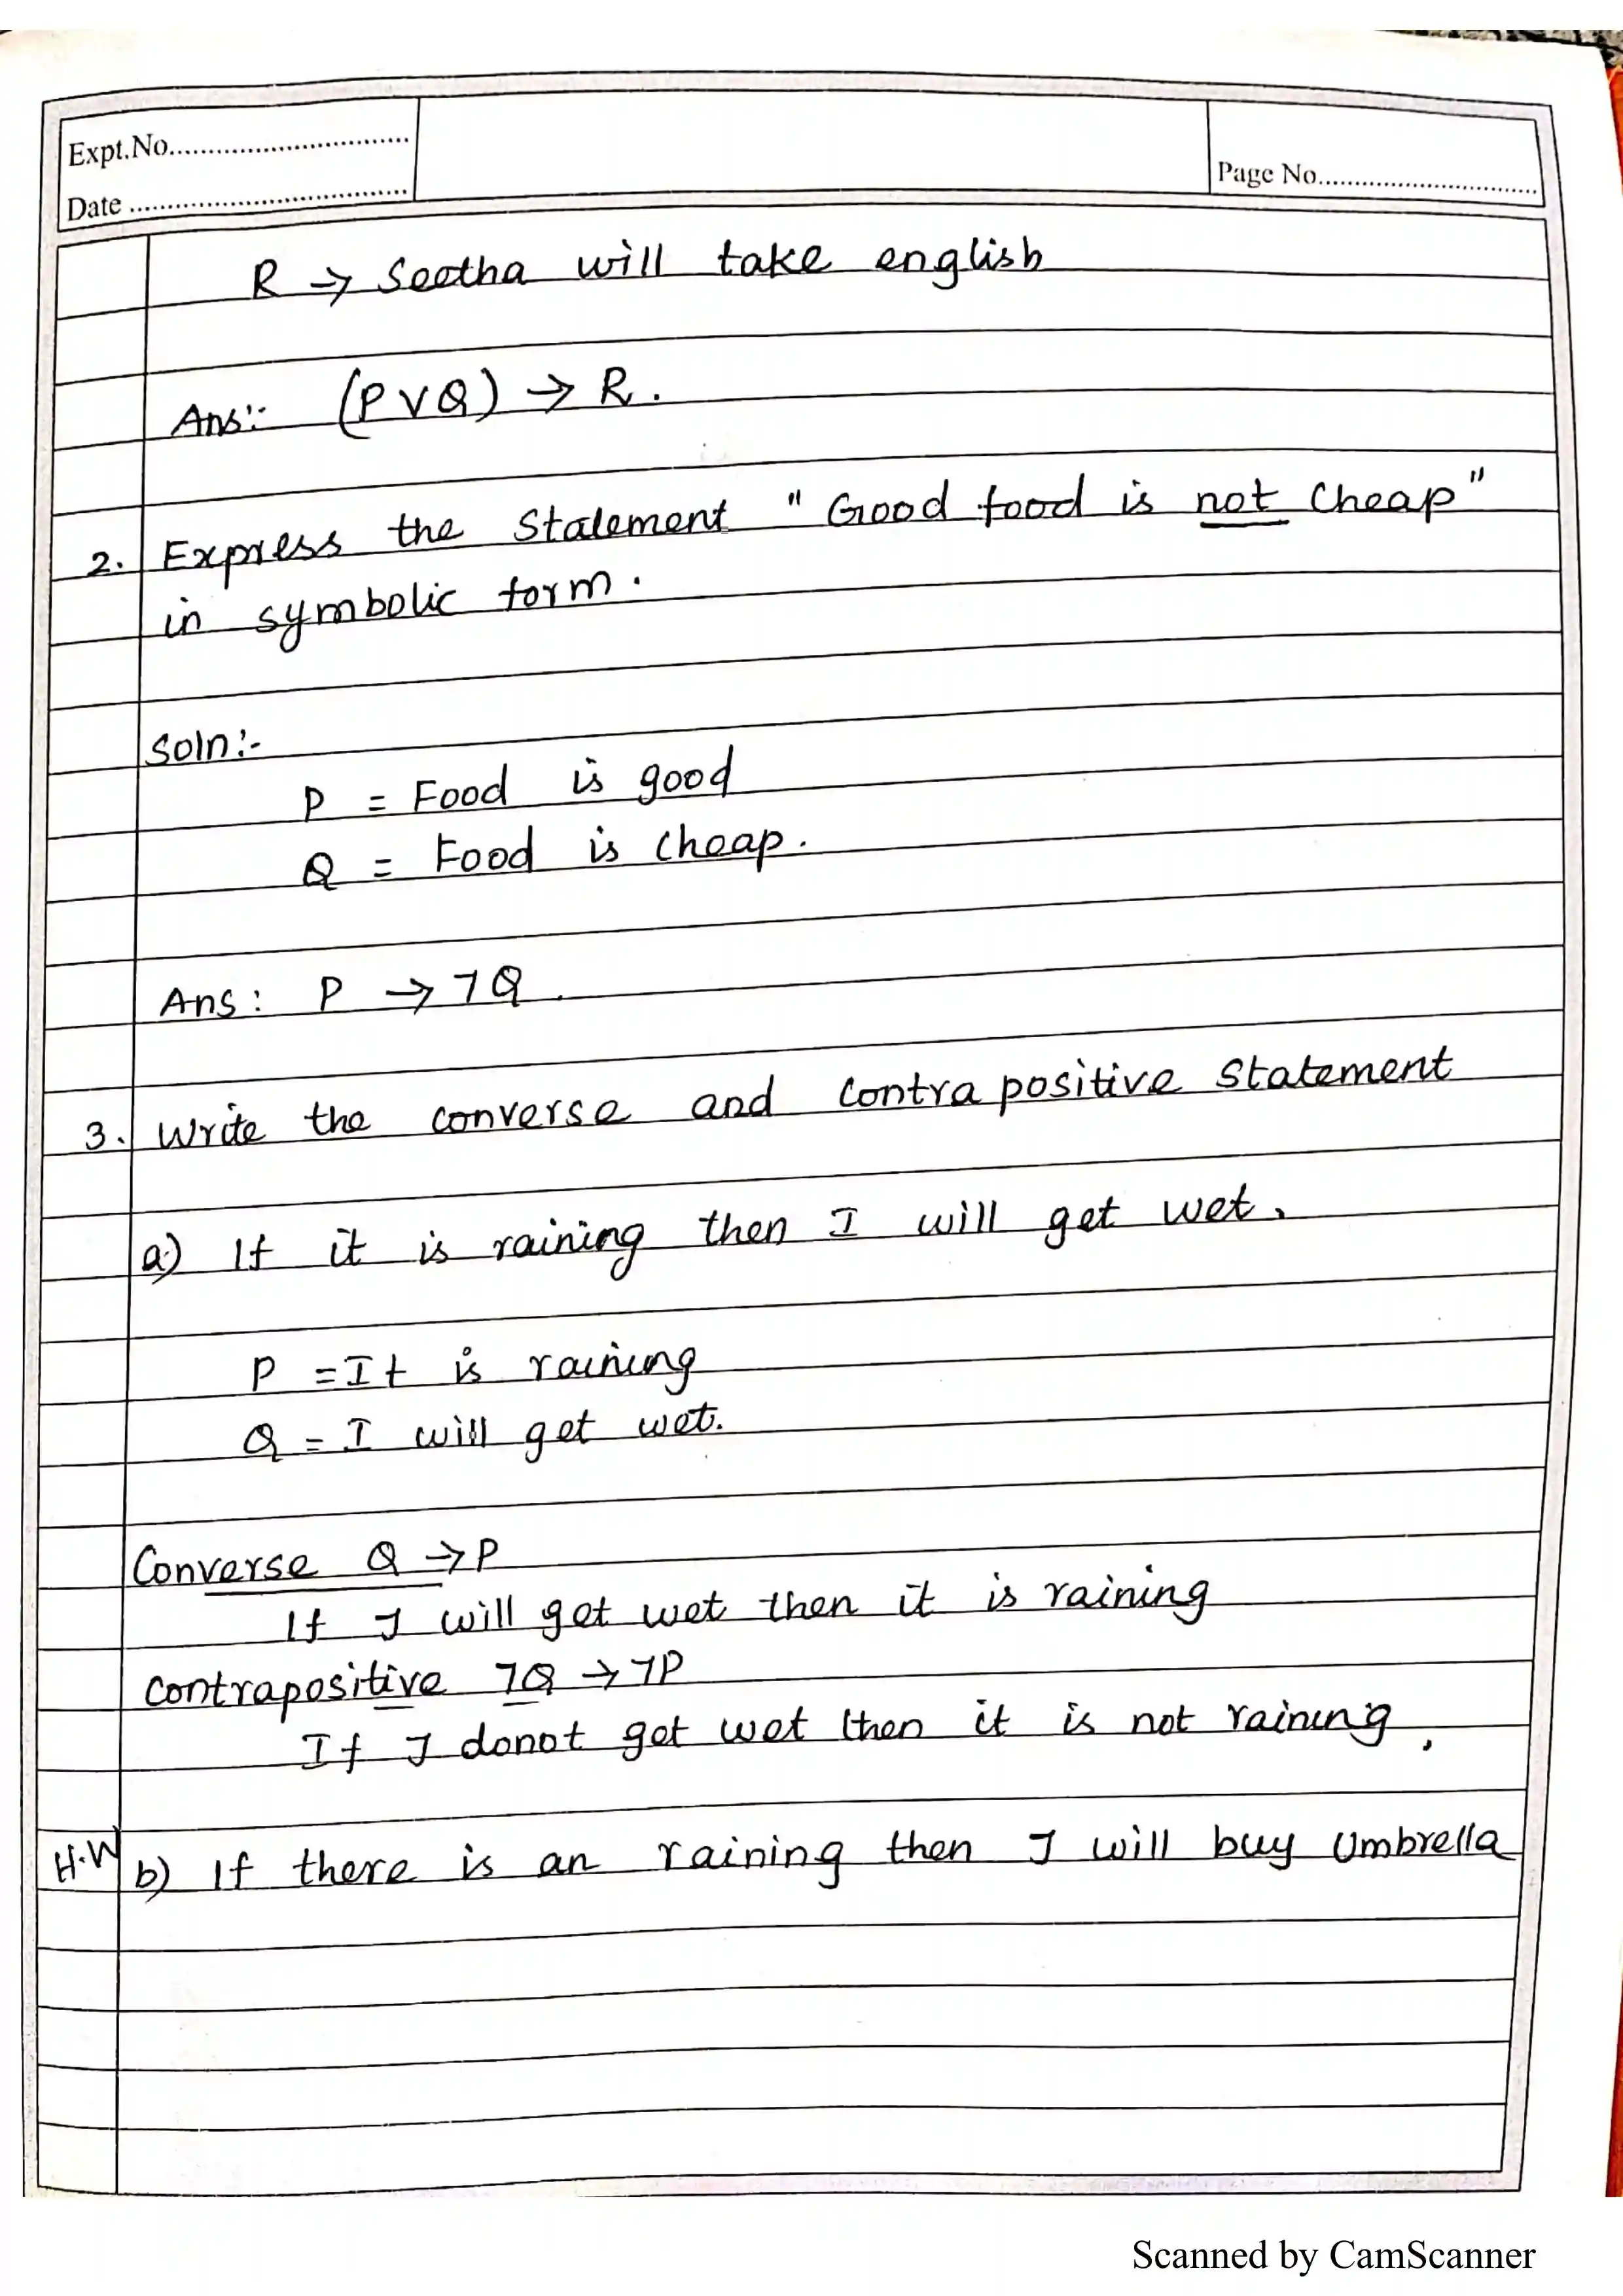 Expt.No..............................
Date ...................................
Page No..............................
R → Seetha will take english
Ans:- (P ∨ Q) → R.
2. Express the Statement " Good food is not Cheap"
in symbolic form.
Soln:-
P = Food is good
Q = Food is cheap.
Ans: P → ⅂Q.
3. Write the converse and Contra positive Statement
a) If it is raining then I will get wet.
P = It is raining
Q = I will get wet.
Converse Q → P
If I will get wet then it is raining
Contrapositive ⅂Q → ⅂P
If I donot get wet then it is not raining.
H.W b) If there is an raining then I will buy Umbrella
Scanned by CamScanner